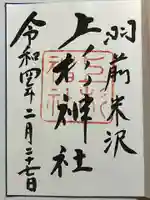 羽前米沢
上杉神社
令和四年二月二十七日